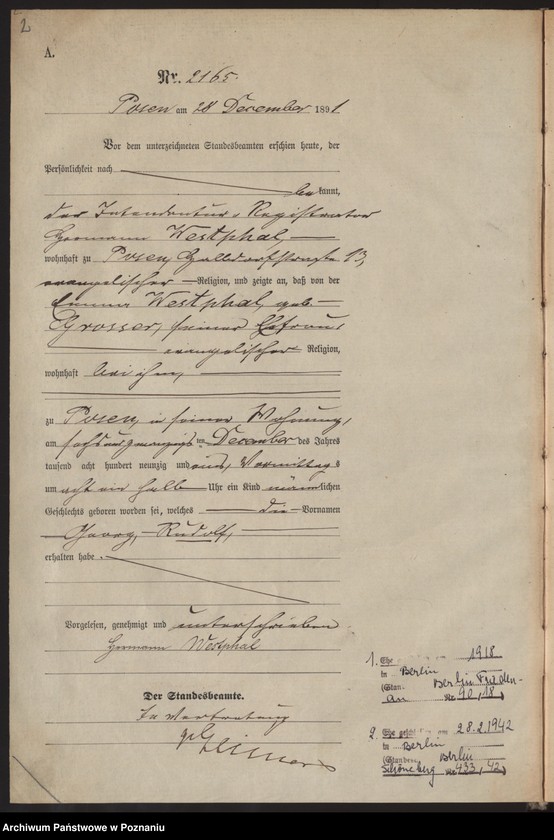 2
A.
Nr. 2165.
Posen am 28 December 1891
Vor dem unterzeichneten Standesbeamten erschien heute, der
Persönlichkeit nach
bekannt,
der Intendantur-Registrator
Hermann Westphal,
wohnhaft zu Posen, Halbdorfstraße 13,
evangelischer Religion, und zeigte an, daß von der
Emma Westphal, geb.
Grosser, seiner Ehefrau
evangelischer Religion,
wohnhaft bei ihm,
zu Posen, in seiner Wohnung,
am sechsundzwanzigsten December des Jahres
tausend acht hundert neunzig und eins, Vormittags
um acht ein halb Uhr ein Kind männlichen
Geschlechts geboren worden sei, welches die Vornamen
Georg, Rudolf,
erhalten habe.
Vorgelesen, genehmigt und unterschrieben
Hermann Westphal
Der Standesbeamte.
In Vertretung
1. Ehe 1918
in Berlin
(Stan. Berlin Frieden-
au Nr. 90, 18)
2. Ehe am 28.2.1942
in Berlin
(Standes. Berlin
Schöneberg Nr. 433, 42)
Archiwum Państwowe w Poznaniu